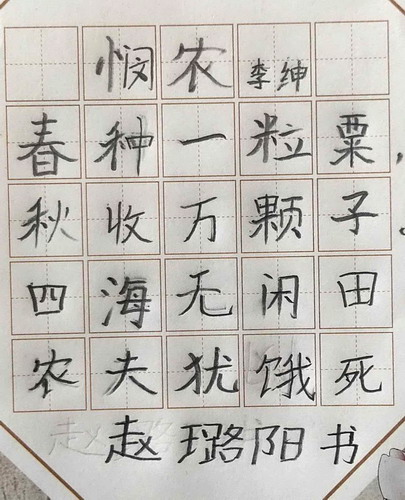 悯农 李绅
春种一粒粟,
秋收万颗子.
四海无闲田
农夫犹饿死
赵璐阳书